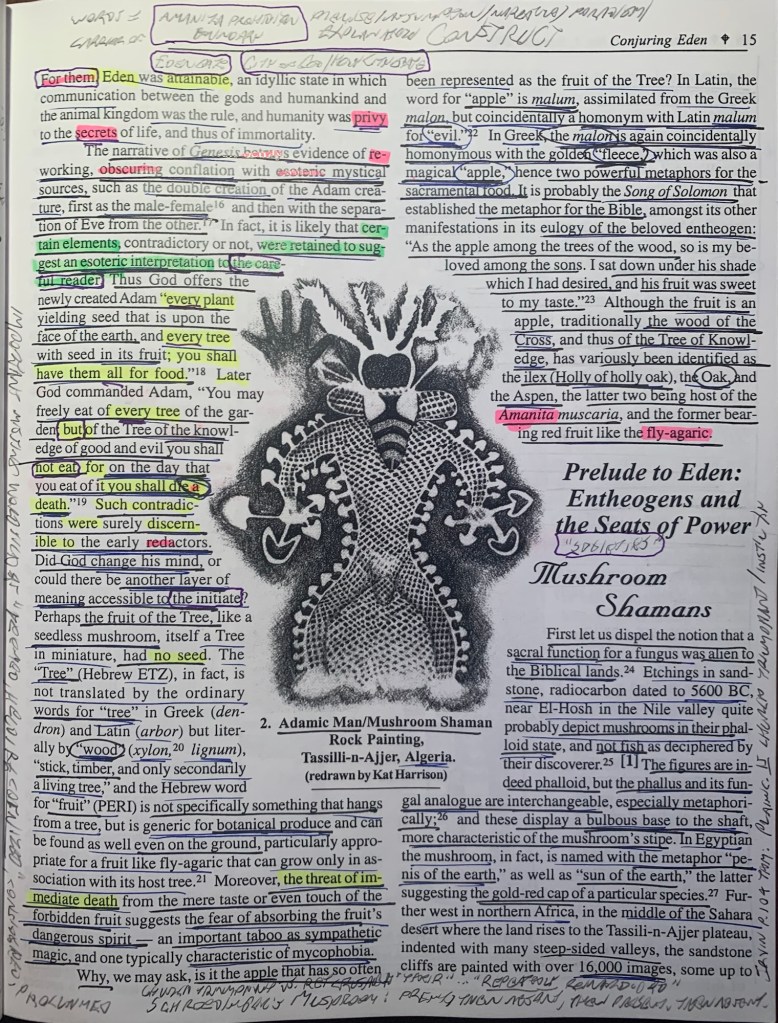 WORDS
CONSTRUCT
Conjuring Eden ✦ 15
For them, Eden was attainable, an idyllic state in which
communication between the gods and humankind and
the animal kingdom was the rule, and humanity was privy
to the secrets of life, and thus of immortality.
The narrative of Genesis betrays evidence of re-
working, obscuring conflation with esoteric mystical
sources, such as the double creation of the Adam crea-
ture, first as the male-female¹⁶ and then with the separa-
tion of Eve from the other.¹⁷ In fact, it is likely that cer-
tain elements, contradictory or not, were retained to sug-
gest an esoteric interpretation to the care-
ful reader. Thus God offers the
newly created Adam “every plant
yielding seed that is upon the
face of the earth, and every tree
with seed in its fruit; you shall
have them all for food.”¹⁸ Later
God commanded Adam, “You may
freely eat of every tree of the gar-
den, but of the Tree of the knowl-
edge of good and evil you shall
not eat, for on the day that
you eat of it you shall die a
death.”¹⁹ Such contradic-
tions were surely discern-
ible to the early redactors.
Did God change his mind, or
could there be another layer of
meaning accessible to the initiate?
Perhaps the fruit of the Tree, like a
seedless mushroom, itself a Tree
in miniature, had no seed. The
“Tree” (Hebrew ETZ), in fact, is
not translated by the ordinary
words for “tree” in Greek (den-
dron) and Latin (arbor) but liter-
ally by “wood” (xylon,²⁰ lignum),
“stick, timber, and only secondarily
a living tree,” and the Hebrew word
for “fruit” (PERI) is not specifically something that hangs
from a tree, but is generic for botanical produce and can
be found as well even on the ground, particularly appro-
priate for a fruit like fly-agaric that can grow only in as-
sociation with its host tree.²¹ Moreover, the threat of im-
mediate death from the mere taste or even touch of the
forbidden fruit suggests the fear of absorbing the fruit’s
dangerous spirit — an important taboo as sympathetic
magic, and one typically characteristic of mycophobia.
Why, we may ask, is it the apple that has so often
2. Adamic Man/Mushroom Shaman
Rock Painting,
Tassilli-n-Ajjer, Algeria.
(redrawn by Kat Harrison)
been represented as the fruit of the Tree? In Latin, the
word for “apple” is malum, assimilated from the Greek
malon, but coincidentally a homonym with Latin malum
for “evil.”²² In Greek, the malon is again coincidentally
homonymous with the golden “fleece,” which was also a
magical “apple,” hence two powerful metaphors for the
sacramental food. It is probably the Song of Solomon that
established the metaphor for the Bible, amongst its other
manifestations in its eulogy of the beloved entheogen:
“As the apple among the trees of the wood, so is my be-
loved among the sons. I sat down under his shade
which I had desired, and his fruit was sweet
to my taste.”²³ Although the fruit is an
apple, traditionally the wood of the
Cross, and thus of the Tree of Knowl-
edge, has variously been identified as
the ilex (Holly of holly oak), the Oak, and
the Aspen, the latter two being host of the
Amanita muscaria, and the former bear-
ing red fruit like the fly-agaric.
Prelude to Eden:
Entheogens and
the Seats of Power
Mushroom
Shamans
First let us dispel the notion that a
sacral function for a fungus was alien to
the Biblical lands.²⁴ Etchings in sand-
stone, radiocarbon dated to 5600 BC,
near El-Hosh in the Nile valley quite
probably depict mushrooms in their phal-
loid state, and not fish as deciphered by
their discoverer.²⁵ [1] The figures are in-
deed phalloid, but the phallus and its fun-
gal analogue are interchangeable, especially metaphori-
cally;²⁶ and these display a bulbous base to the shaft,
more characteristic of the mushroom’s stipe. In Egyptian
the mushroom, in fact, is named with the metaphor “pe-
nis of the earth,” as well as “sun of the earth,” the latter
suggesting the gold-red cap of a particular species.²⁷ Fur-
ther west in northern Africa, in the middle of the Sahara
desert where the land rises to the Tassili-n-Ajjer plateau,
indented with many steep-sided valleys, the sandstone
cliffs are painted with over 16,000 images, some up to